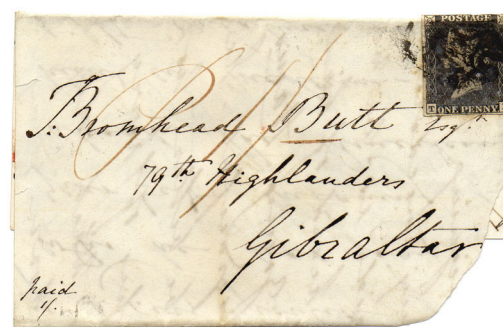 POSTAGE
T ONE PENNY
T: Bromhead Butt Esqr.
79th Highlanders
Gibraltar
paid
1/.